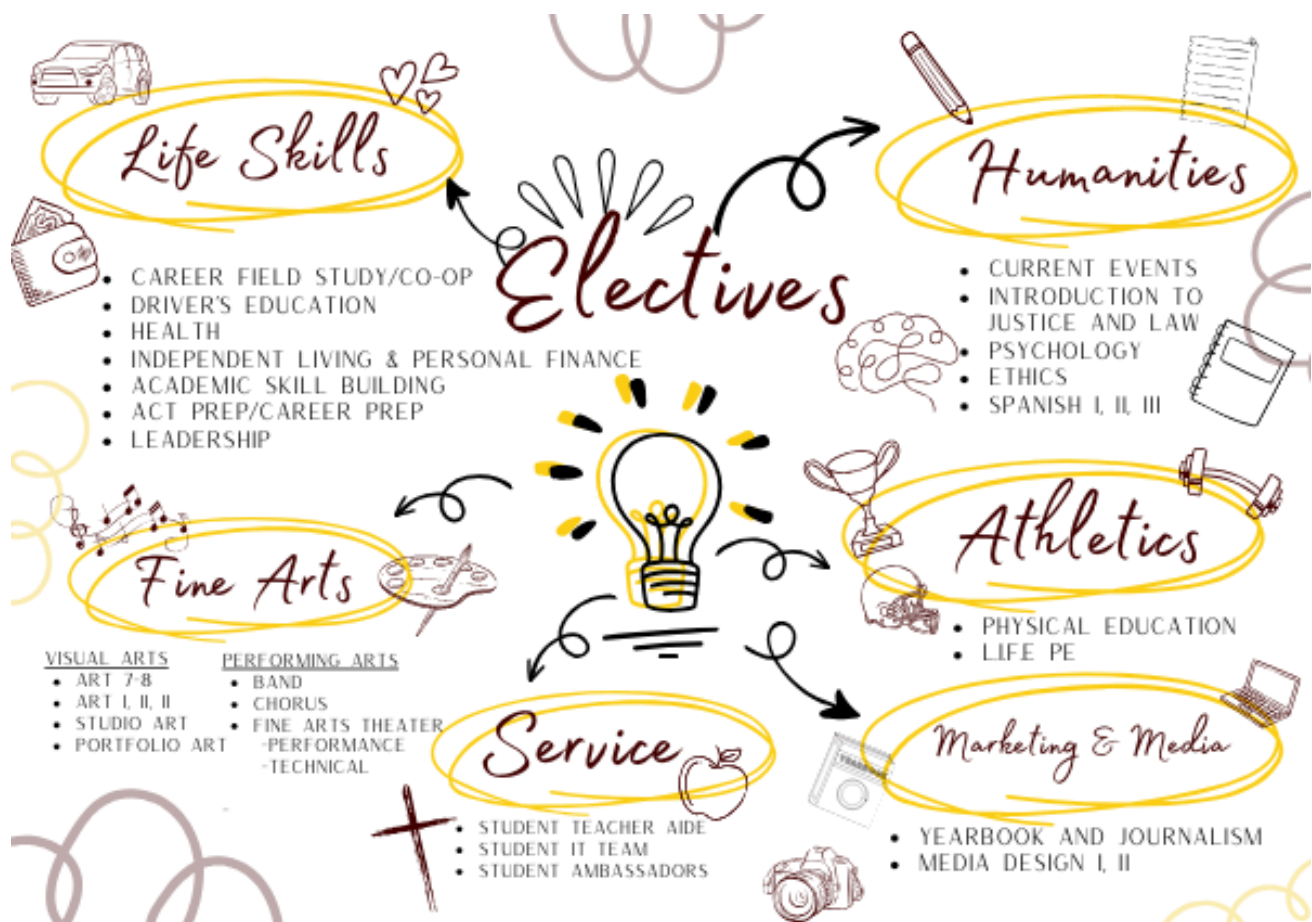 Electives
Life Skills
• CAREER FIELD STUDY/CO-OP
• DRIVER'S EDUCATION
• HEALTH
• INDEPENDENT LIVING & PERSONAL FINANCE
• ACADEMIC SKILL BUILDING
• ACT PREP/CAREER PREP
• LEADERSHIP
Humanities
• CURRENT EVENTS
• INTRODUCTION TO
JUSTICE AND LAW
• PSYCHOLOGY
• ETHICS
• SPANISH I, II, III
Fine Arts
VISUAL ARTS
• ART 7-8
• ART I, II, II
• STUDIO ART
• PORTFOLIO ART
PERFORMING ARTS
• BAND
• CHORUS
• FINE ARTS THEATER
-PERFORMANCE
-TECHNICAL
Athletics
• PHYSICAL EDUCATION
• L.I.F.E PE
Service
• STUDENT TEACHER AIDE
• STUDENT IT TEAM
• STUDENT AMBASSADORS
Marketing & Media
YEARBOOK
• YEARBOOK AND JOURNALISM
• MEDIA DESIGN I, II